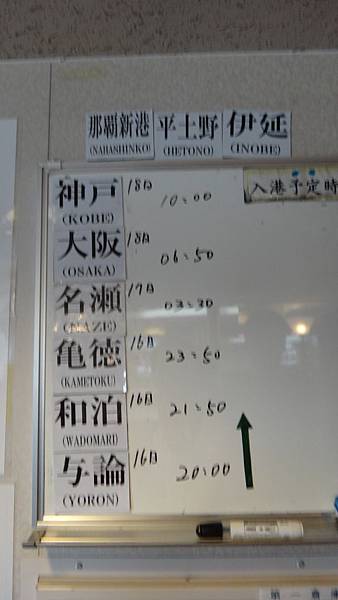 那覇新港 平土野 伊延
(NAHASHINKO) (HETONO) (INOBE)
入港予定時
神戸 18日 10:00
(KOBE)
大阪 18日 06:50
(OSAKA)
名瀬 17日 03:30
(NAZE)
亀徳 16日 23:50
(KAMETOKU)
和泊 16日 21:50
(WADOMARI)
与論 16日 20:00
(YORON)